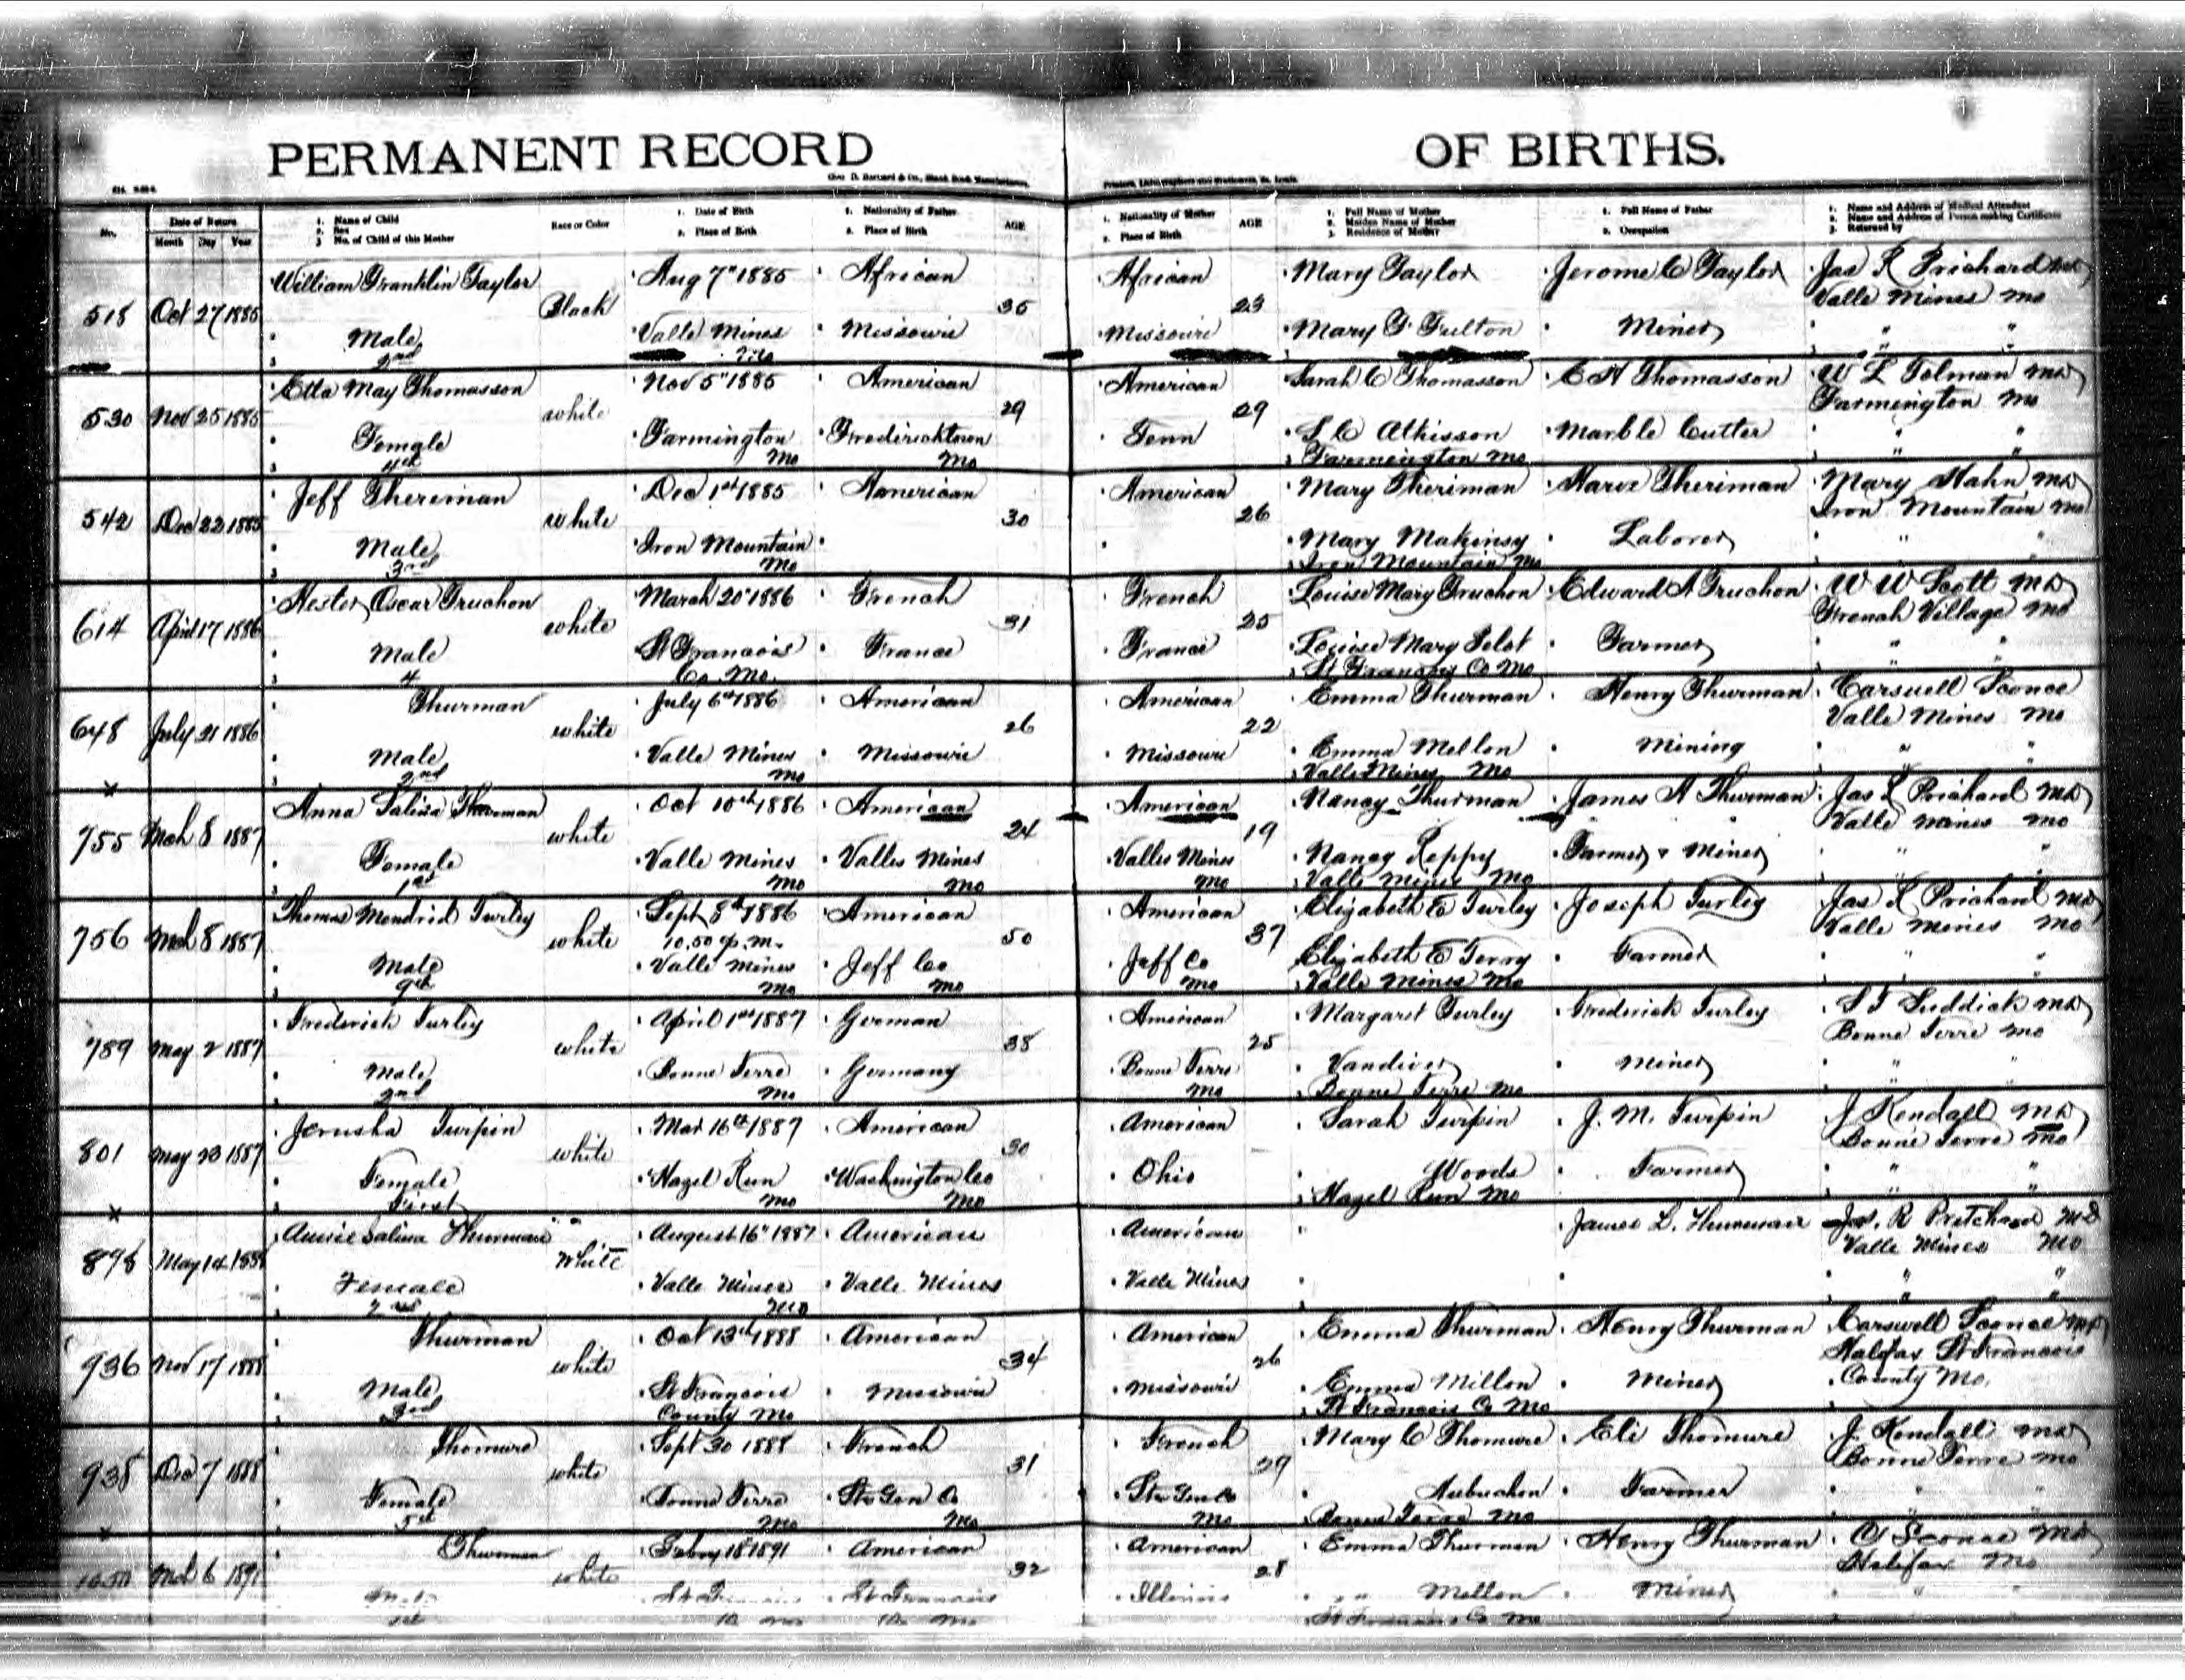 PERMANENT RECORD OF BIRTHS.
Chas D. Barnard & Co., Blank Book Manufacturers, Printers, Lithographers and Stationers, St. Louis.
No. Date of Return 1. Name of Child Race or Color 1. Date of Birth 1. Nationality of Father AGE 1. Nationality of Mother AGE 1. Full Name of Mother 1. Full Name of Father 1. Name and Address of Medical Attendant
Month Day Year 2. Sex 2. Place of Birth 2. Place of Birth 2. Place of Birth 2. Maiden Name of Mother 2. Occupation 2. Name and Address of Person making Certificate
3. No. of Child of this Mother 3. Residence of Mother 3. Returned by
William Franklin Taylor Aug 7" 1885 African African Mary Taylor Jerome C Taylor Jas R Prichard MD
518 Oct 27 1885 Black 35 23 Valle Mines Mo
Male Valle Mines Missouri Missouri Mary F Fulton Miner " "
2nd Mo
Etta May Thomasson Nov 5" 1885 American American Sarah C Thomasson C A Thomasson W L Tolman MD
530 Nov 25 1885 white 29 29 Farmington Mo
Female Farmington Fredericktown Tenn S C Atkisson Marble Cutter " "
4th Mo Mo 3 Farmington Mo " "
Jeff Theriman Dec 1st 1885 American American Mary Theriman Theriman Mary Hahn MD
542 Dec 22 1885 white 30 26 Iron Mountain Mo
Male Iron Mountain Mary Makinsy Laborer " "
3rd Mo 3 Iron Mountain Mo
Hester Oscar Truchon March 20" 1886 French French Louise Mary Truchon Edward A Truchon W W Scott MD
614 April 17 1886 white 31 25 French Village Mo
Male St Francois France France Louise Mary Farmer " "
4 Co. Mo. 3 St Francois Co Mo
Thurman July 6th 1886 American American Emma Thurman Henry Thurman Carswell Sconce
648 July 21 1886 white 26 22 Valle Mines Mo
Male Valle Mines Missouri Missouri Emma Mellon Mining " "
2nd Mo 3 Valle Mines Mo
x Anna Salina Thurman Oct 10th 1886 American American Nancy Thurman James A Thurman Jas R Prichard MD
755 Mch 8 1887 white 24 19 Valle Mines Mo
Female Valle Mines Valles Mines Valles Mines Nancy Reppy Farmer & Miner " "
1st Mo Mo Mo 3 Valle Mines Mo
Thomas Turley Sept 8th 1886 American American Elizabeth E Turley Joseph Turley Jas R Prichard MD
756 Mch 8 1887 white 10.50 p.m. 50 37 Valle Mines Mo
Male Valle Mines Jeff Co Jeff Co Elizabeth E Terry Farmer " "
9th Mo Mo Mo 3 Valle Mines Mo
Frederick Turley April 1st 1887 German American Margaret Turley Frederick Turley MD
789 May 2 1887 white 38 25 Bonne Terre Mo
Male Bonne Terre Germany Bonne Terre Vandiver Miner " "
2nd Mo Mo 3 Bonne Terre Mo
Jerusha Turpin Mar 16th 1887 American American Sarah Turpin J. M. Turpin J Kendall MD
801 May 23 1887 white 30 Bonne Terre Mo
Female Hazel Run Washington Co Ohio Woods Farmer " "
First Mo Mo 3 Hazel Run Mo " "
x Annie Salina Thurman August 16" 1887 American American James L. Thurman Jas. R Pritchard MD
May 14 1888 White Valle Mines Mo
Female Valle Mines Valle Mines Valle Mines " "
2nd Mo
Thurman Oct 13th 1888 American American Emma Thurman Henry Thurman Carswell Sconce MD
936 Nov 17 1888 white 34 26 Halifax St Francois
Male St Francois Missouri Missouri Emma Millon Miner County Mo.
3rd County Mo 3 St Francois Co Mo
Thomure Sept 30 1888 French French Mary C Thomure Eli Thomure J. Kendall MD
938 Dec 7 1888 white 31 29 Bonne Terre Mo
Female Bonne Terre Ste Gen Co Ste Gen Co Aubuchon Farmer " "
5th Mo Mo Mo Bonne Terre Mo
x Thurman 1891 American American Emma Thurman Henry Thurman C Sconce MD
Mch 6 1891 white 32 28 Halifax Mo
Male St Francois St Francois Illinois " " Mellon Miner " "
Co Mo Co Mo St Francois Co Mo